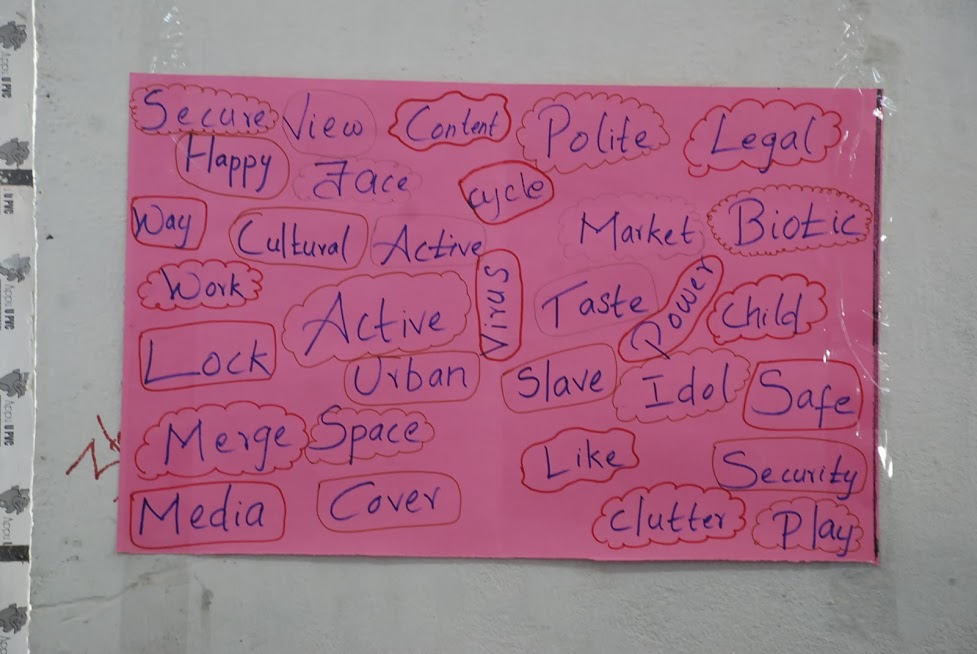 Secure View Content Polite Legal
Happy Face cycle
Way Cultural Active Market Biotic
Work Active Virus Taste Power Child
Lock Urban Slave Idol Safe
Merge Space Like Security
Media Cover Clutter Play